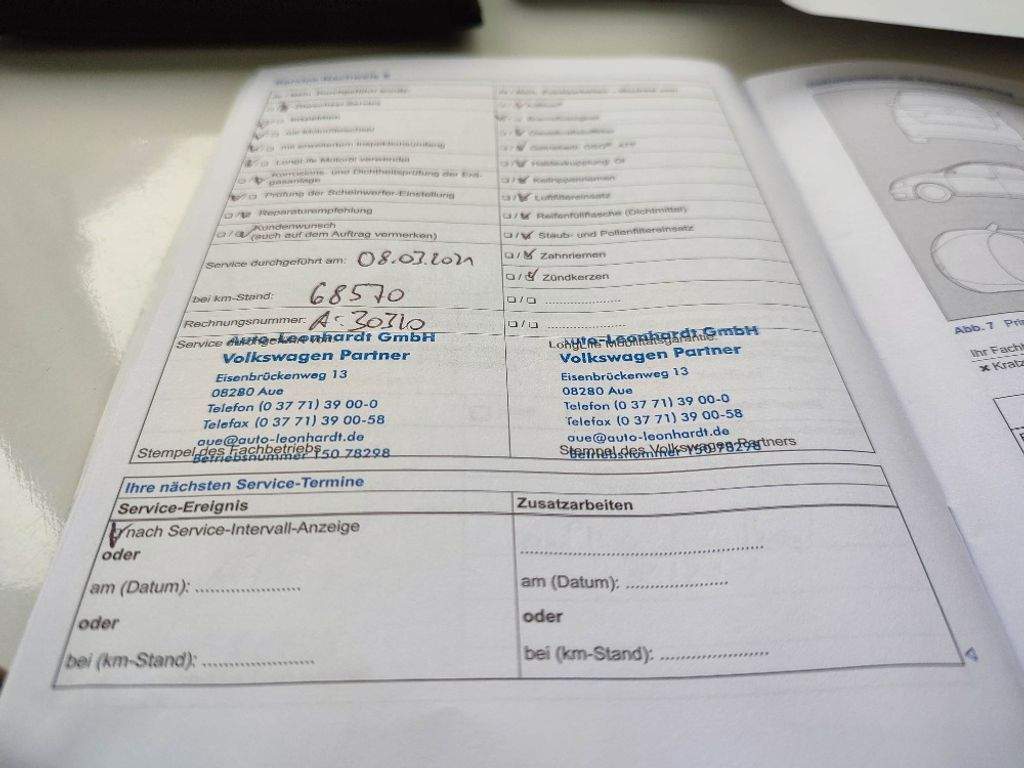 Service-Nachweis
Inspektion
mit erweitertem Inspektionsumfang
LongLife Motoröl verwendet
Korrosions- und Dichtheitsprüfung der Erdgasanlage
Prüfung der Scheinwerfer-Einstellung
Reparaturempfehlung
Kundenwunsch
(auch auf dem Auftrag vermerken)
Service durchgeführt am: 08.03.2021
bei km-Stand: 68570
Rechnungsnummer: A-30310
Service durchgeführt von:
Auto-Leonhardt GmbH
Volkswagen Partner
Eisenbrückenweg 13
08280 Aue
Telefon (0 37 71) 39 00-0
Telefax (0 37 71) 39 00-58
aue@auto-leonhardt.de
Stempel des Fachbetriebs
Betriebsnummer 150 78298
Keilrippenriemen
Luftfiltereinsatz
Reifenfüllflasche (Dichtmittel)
Staub- und Pollenfiltereinsatz
Zahnriemen
Zündkerzen
LongLife Mobilitätsgarantie:
Auto-Leonhardt GmbH
Volkswagen Partner
Eisenbrückenweg 13
08280 Aue
Telefon (0 37 71) 39 00-0
Telefax (0 37 71) 39 00-58
aue@auto-leonhardt.de
Stempel des Volkswagen Partners
Betriebsnummer 150 78298
Ihre nächsten Service-Termine
Service-Ereignis
nach Service-Intervall-Anzeige
oder
am (Datum): .....................
oder
bei (km-Stand): ......................
Zusatzarbeiten
am (Datum): .....................
oder
bei (km-Stand): ......................
Abb. 7
Ihr Fachh